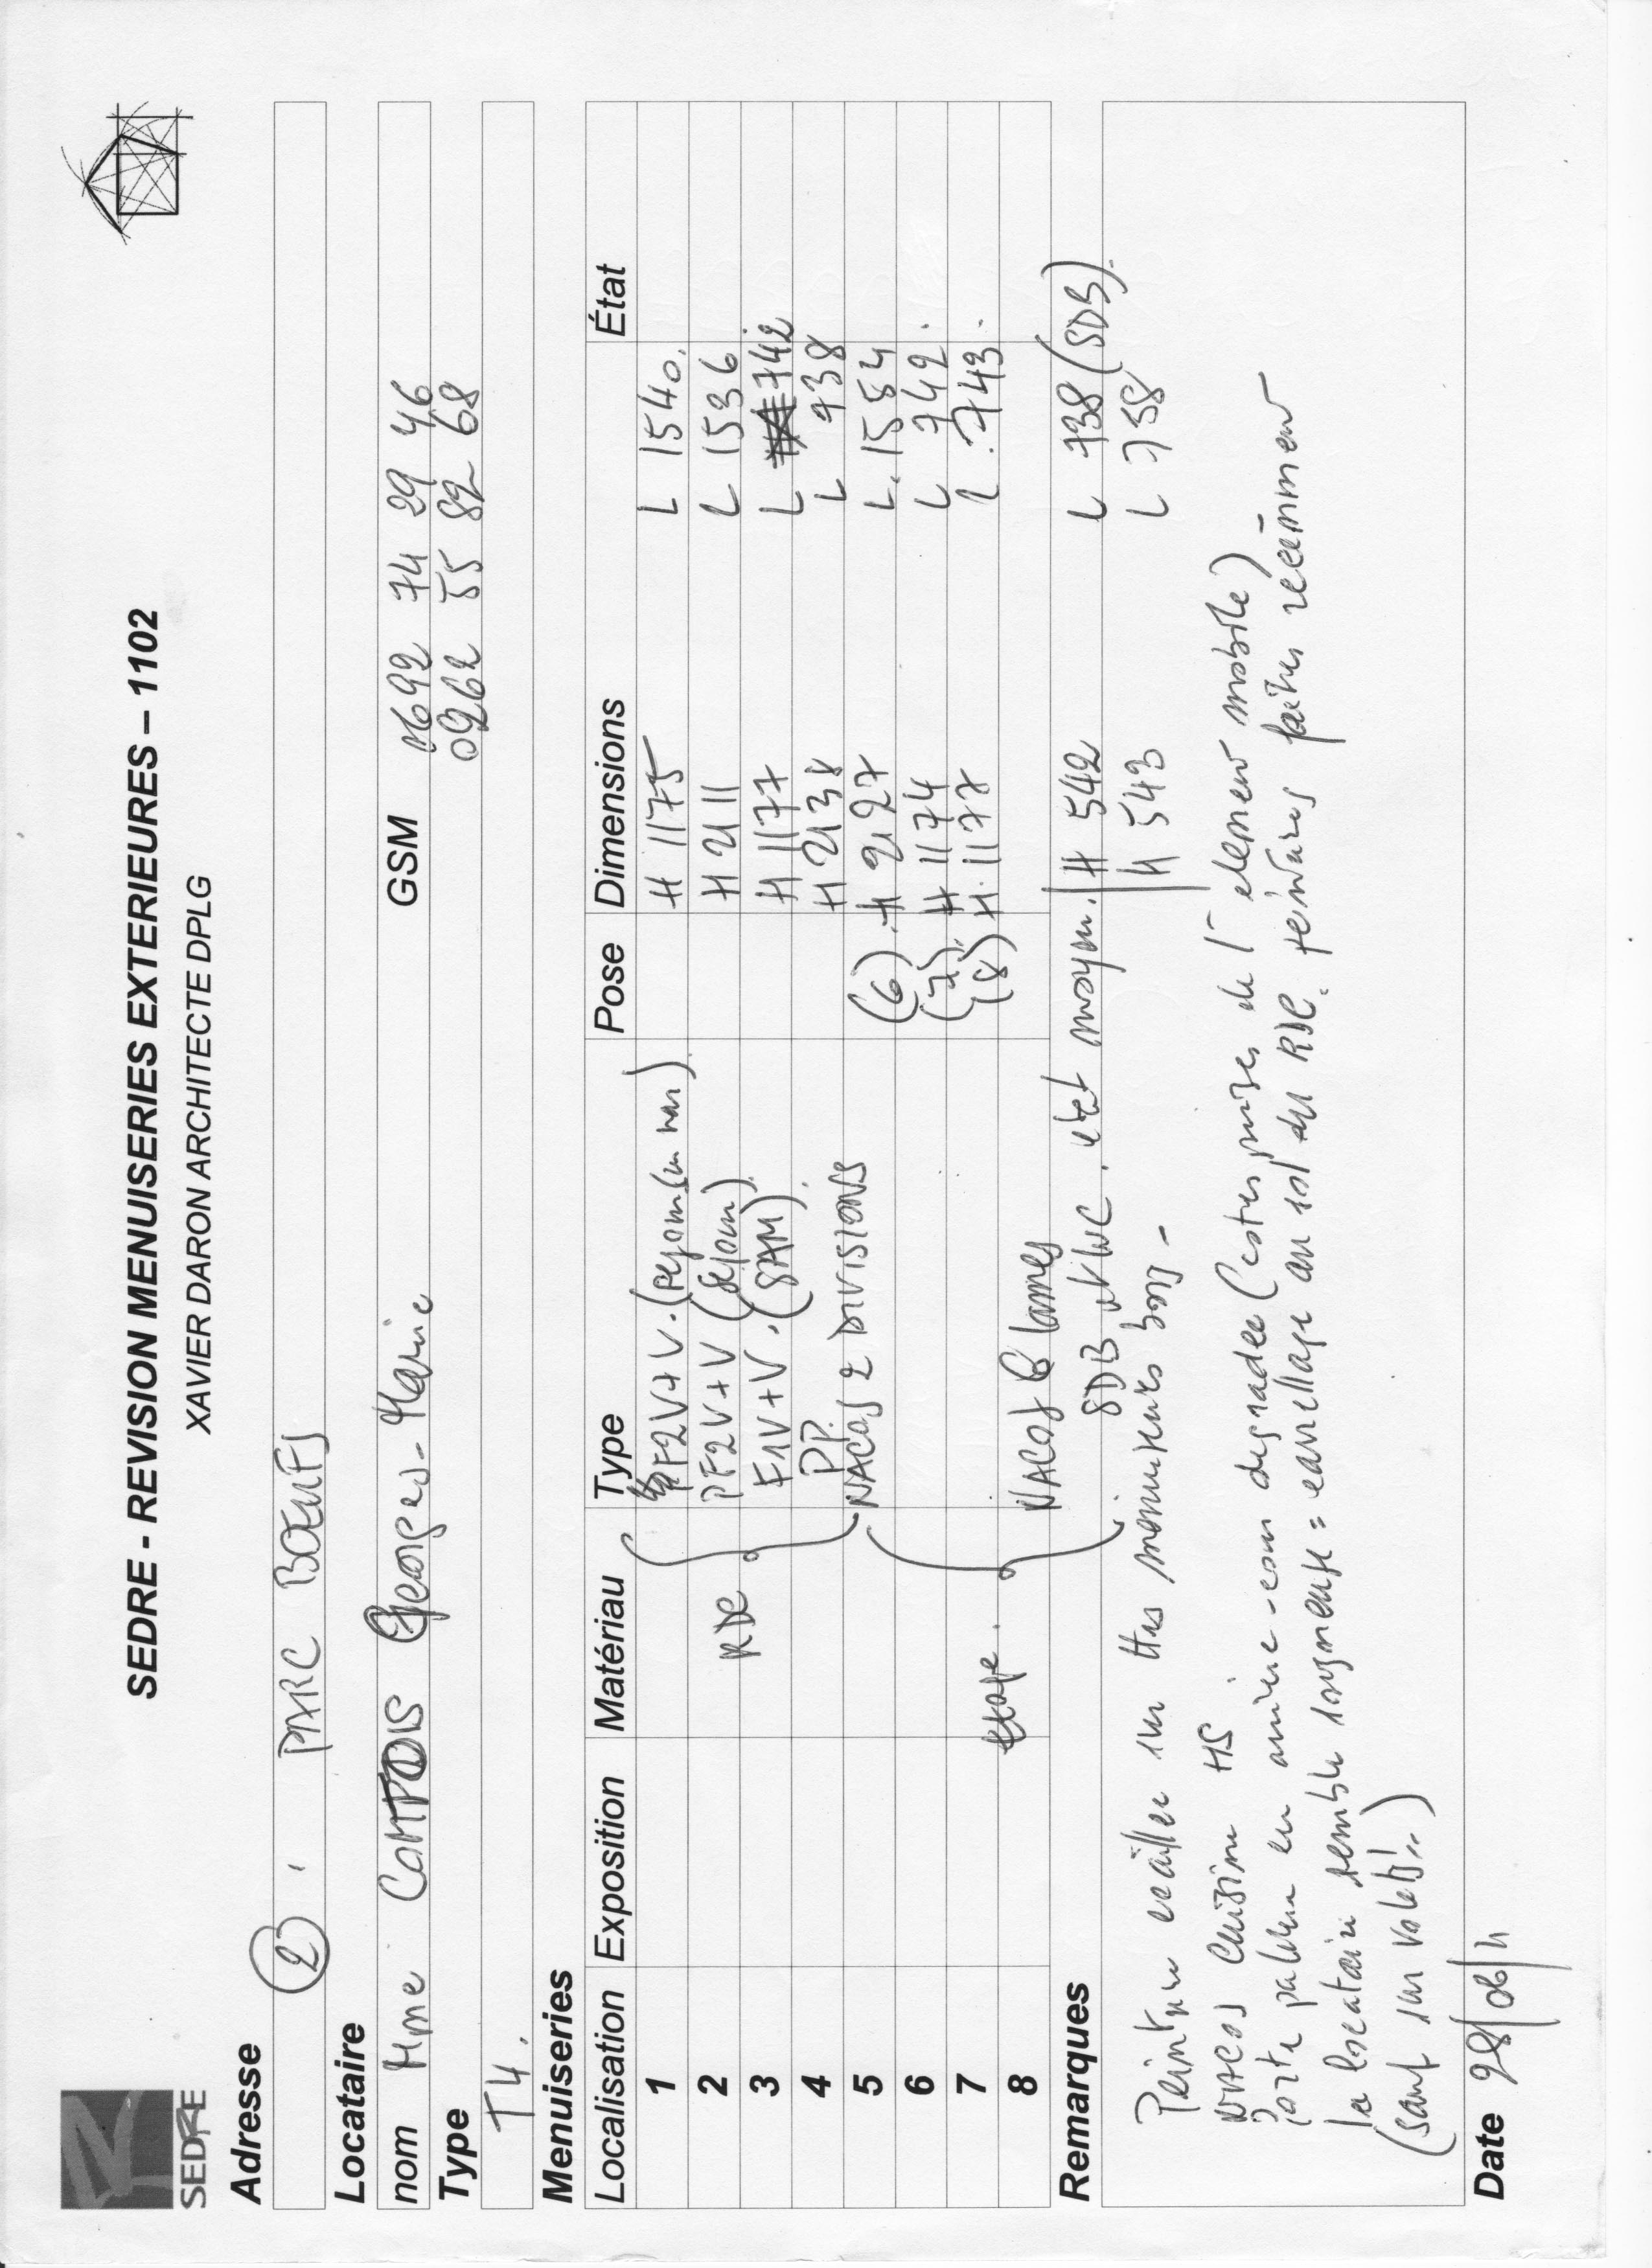 SEDRE
SEDRE - REVISION MENUISERIES EXTERIEURES – 1102
XAVIER DARON ARCHITECTE DPLG
Adresse
2 . PARC BOEUFS
Locataire
nom Mme COMTOIS Georges-Marie GSM 0692 74 29 46
Type 0262 55 82 68
T4.
Menuiseries
Localisation Exposition Matériau Type Pose Dimensions État
1 PF2V+V. H 1175 L 1540.
2 RDC PF2V+V (Séjour) H 2111 L 1536
3 F1V+V. (SAM). H 1177 L 742
4 PP. H 2138 L 938
5 NACOS 2 DIVISIONS (6). H 2127 L. 1584
6 (7). H 1174 L 742.
7 etage. (8) H. 1177 L. 743.
8 NACOS 6 lames
Remarques SDB WC. etat moyen. H 542 L 738 (SDB).
H 543 L 738
Peinture écaillée sur ttes menuiseries bois -
NACOS Cuisine HS
Porte palière en arrière-cour dégradée ( de l' element mobile)
la locataire semble soigneuse = carrellage au sol du RDC. peintures faites récemmen
(sauf sur volets!..)
Date 28/06/11